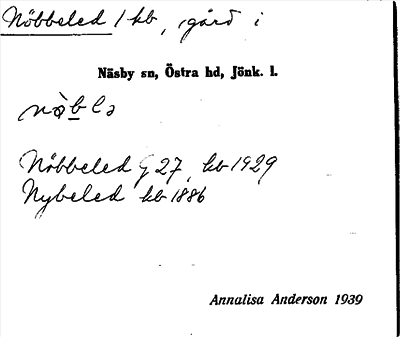 Nöbbeled 1 kb, gård i
Näsby sn, Östra hd, Jönk. l.
Nöbbeled G 27, kb 1929
Nybeled kb 1886
Annalisa Anderson 1939